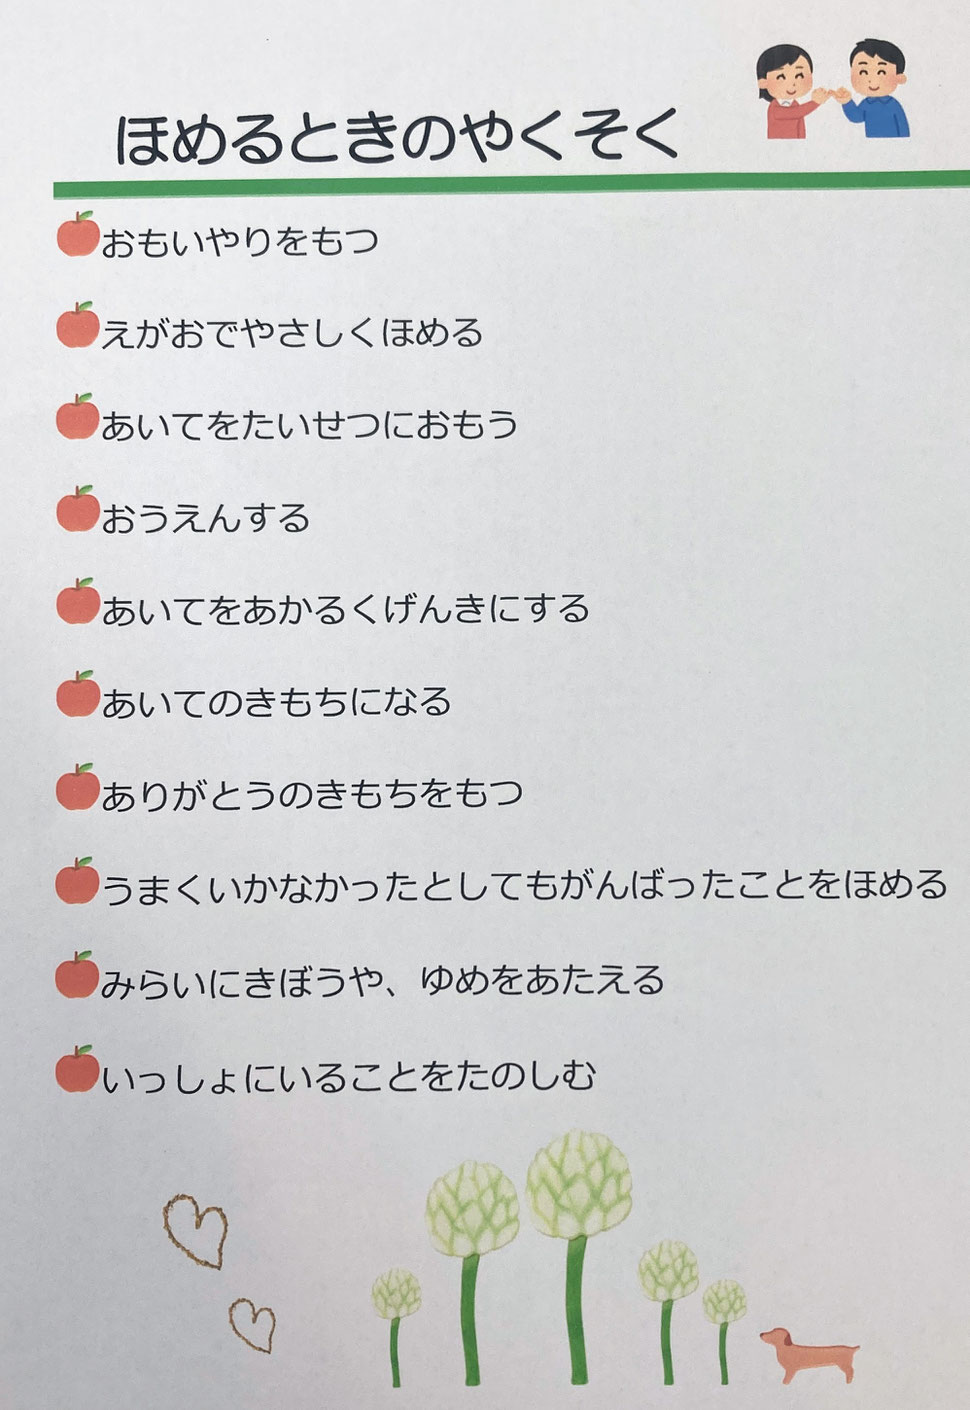 ほめるときのやくそく
おもいやりをもつ
えがおでやさしくほめる
あいてをたいせつにおもう
おうえんする
あいてをあかるくげんきにする
あいてのきもちになる
ありがとうのきもちをもつ
うまくいかなかったとしてもがんばったことをほめる
みらいにきぼうや、ゆめをあたえる
いっしょにいることをたのしむ